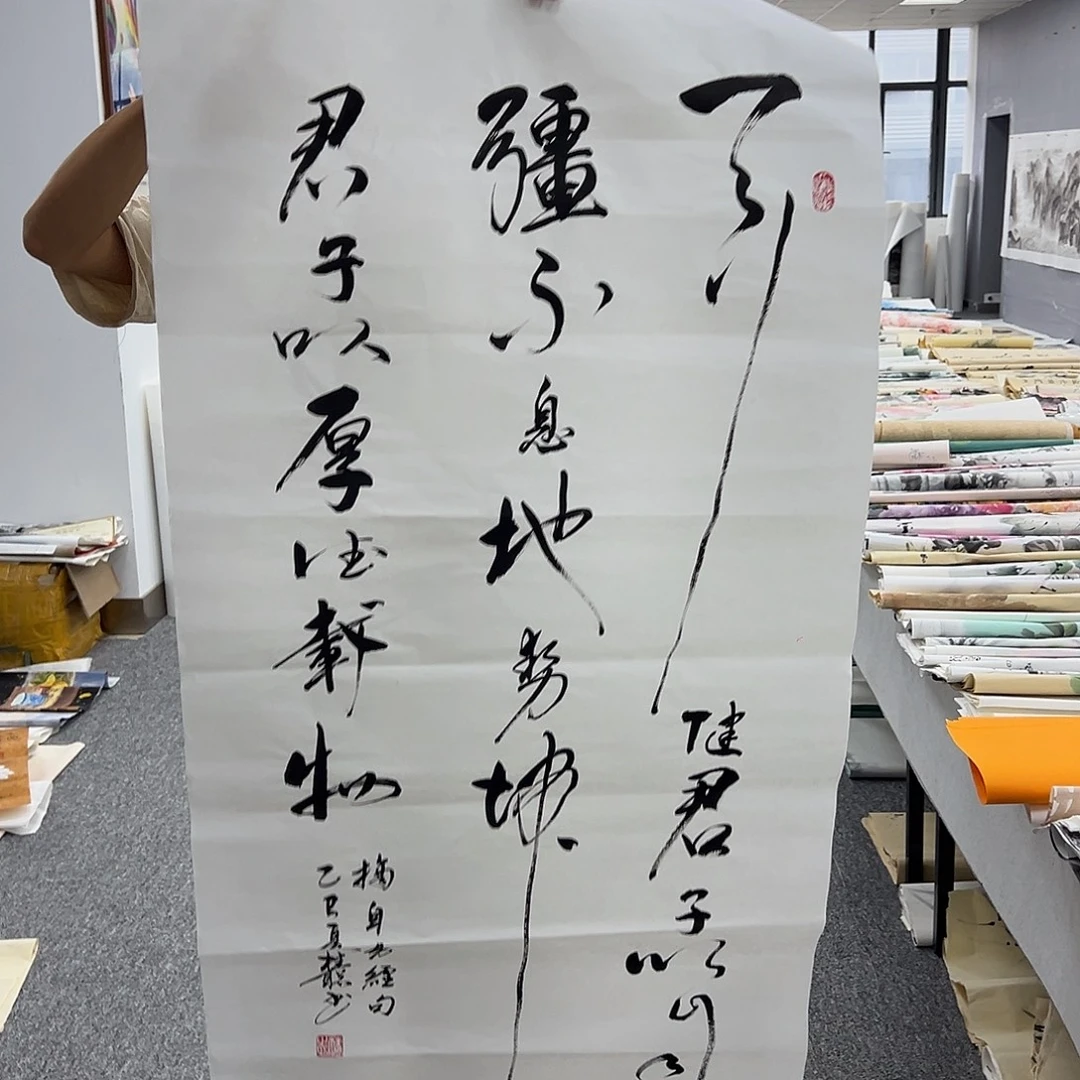 天行健君子以自
彊不息地势坤
君子以厚德载物
摘自易經句
乙巳夏